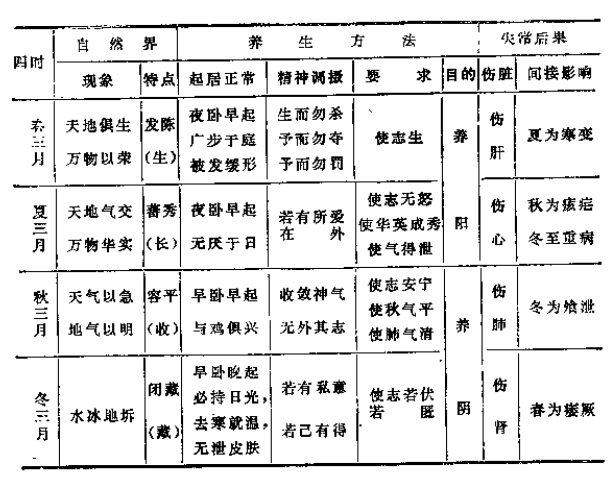 四时 自然界 养生方法 失常后果
现象 特点 起居正常 精神调摄 要求 目的 伤脏 间接影响
春三月 天地俱生 万物以荣 发陈 (生) 夜卧早起 广步于庭 被发缓形 生而勿杀 予而勿夺 予而勿罚 使志生 养阳 伤肝 夏为寒变
夏三月 天地气交 万物华实 蕃秀 (长) 夜卧早起 无厌于日 若有所爱在外 使志无怒 使华英成秀 使气得泄 伤心 秋为痎疟 冬至重病
秋三月 天气以急 地气以明 容平 (收) 早卧早起 与鸡俱兴 收敛神气 无外其志 使志安宁 使秋气平 使肺气清 养阴 伤肺 冬为飧泄
冬三月 水冰地坼 闭藏 (藏) 早卧晚起 必待日光, 去寒就温, 无泄皮肤 若有私意 若己有得 使志若伏若匿 伤肾 春为痿厥